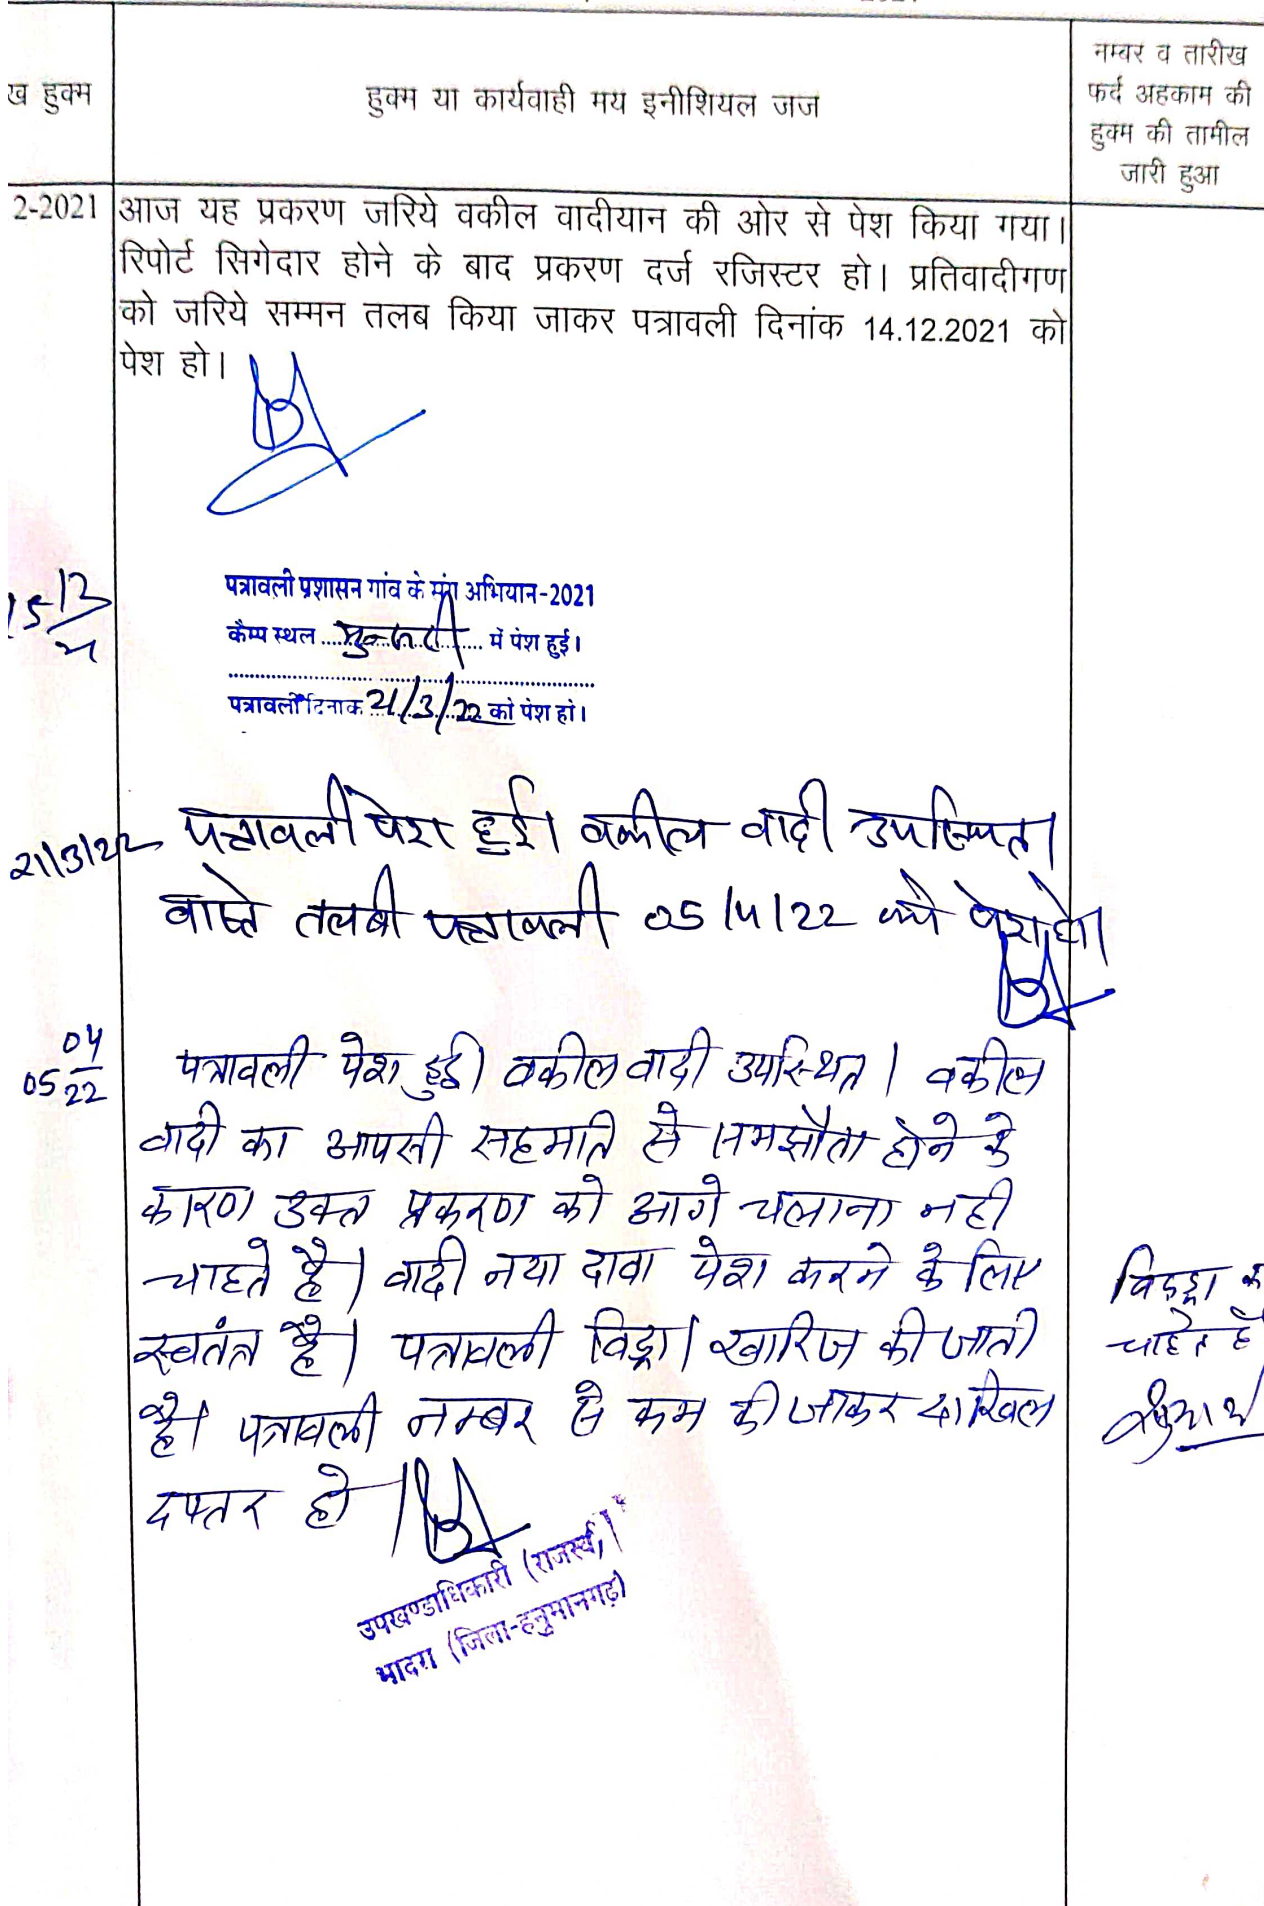 ख हुक्म
हुक्म या कार्यवाही मय इनीशियल जज
नम्बर व तारीख
फर्द अहकाम की
हुक्म की तामील
जारी हुआ
2-2021
आज यह प्रकरण जरिये वकील वादीयान की ओर से पेश किया गया।
रिपोर्ट सिगेदार होने के बाद प्रकरण दर्ज रजिस्टर हो। प्रतिवादीगण
को जरिये सम्मन तलब किया जाकर पत्रावली दिनांक 14.12.2021 को
पेश हो।
पत्रावली प्रशासन गांव के संग अभियान-2021
कैम्प स्थल में पेश हुई।
पत्रावली दिनाक 21/3/22 को पेश हो।
21/3/22
पत्रावली पेश हुई। वकील वादी उपस्थित।
वास्ते तलबी पत्रावली 05/4/22 को पेश हो।
05 04/22
पत्रावली पेश हुई। वकील वादी उपस्थित। वकील
वादी का आपसी सहमति से समझौता होने के
कारण उक्त प्रकरण को आगे चलाना नही
चाहते है। वादी नया दावा पेश करने के लिए
स्वतंत्र है। पत्रावली विड्रा। खारिज की जाती
है। पत्रावली नम्बर से कम की जाकर दाखिल
दफ्तर हो।
चाहते है
उपखण्डाधिकारी (राजस्व)
भादरा (जिला-हनुमानगढ़)